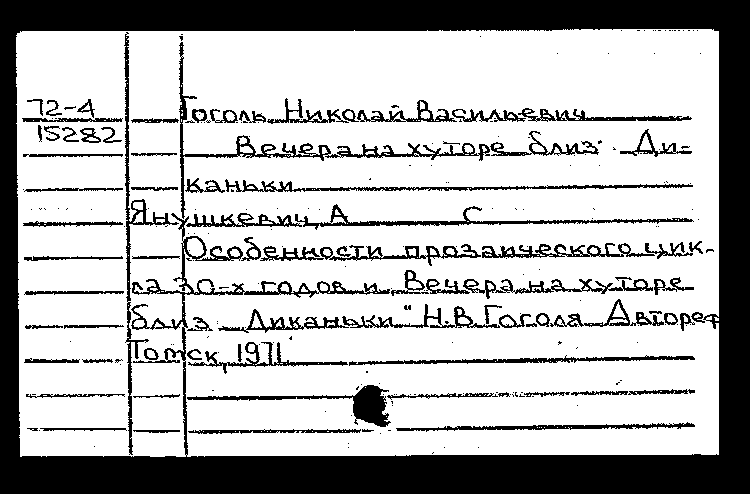 72-4
Гоголь, Николай Васильевич
15282
Вечера на хуторе близ Ди-
каньки
Янушкевич, А С
Особенности прозаического цик-
ла 30-х годов и „Вечера на хуторе
близ Диканьки" Н.В. Гоголя Автореф
Томск, 1971.